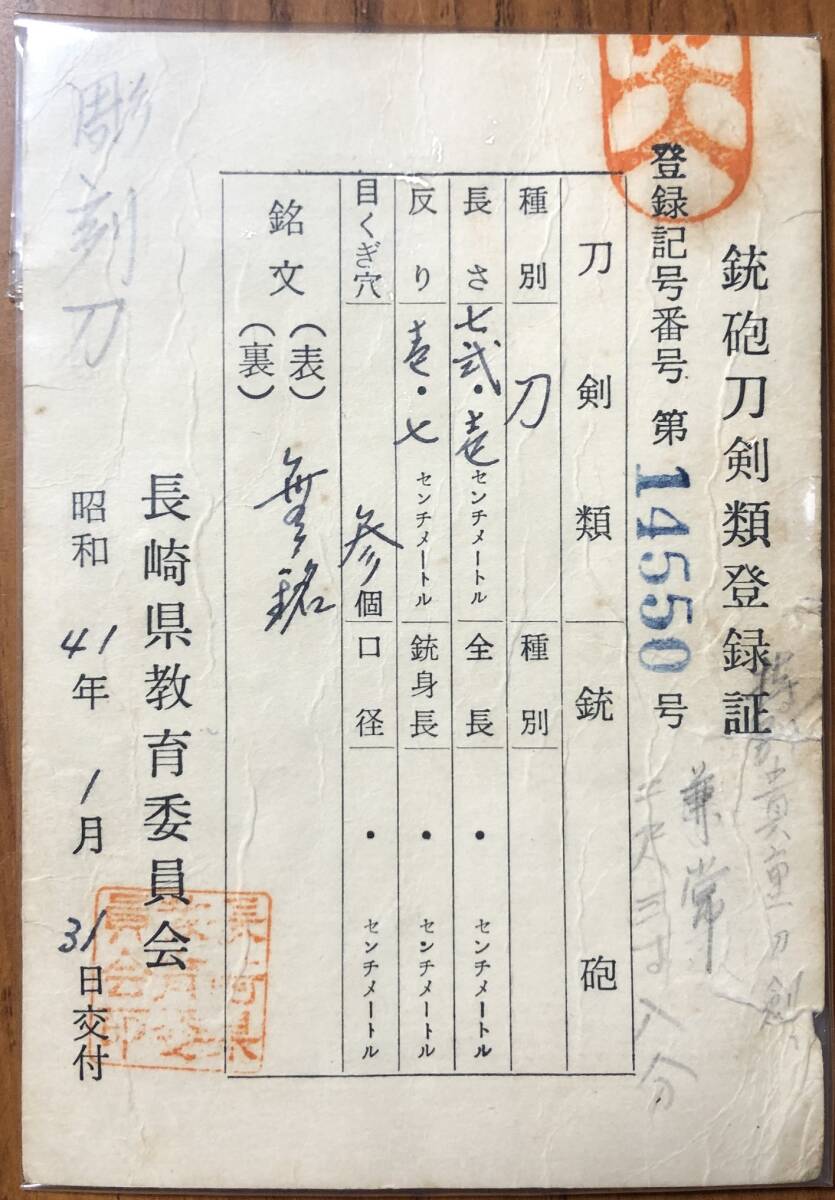 銃砲刀剣類登録証
登録記号番号 第14550号
刀剣類 銃砲
種別 刀 種別
長さ 七弐・壱センチメートル 全長 ・ センチメートル
反り 壱・七センチメートル 銃身長 ・ センチメートル
目くぎ穴 参個 口径 ・ センチメートル
銘文(表)
(裏)
無銘
長崎県教育委員会
昭和41年1月31日交付
長崎県
教育委
員会印
特別貴重刀剣
兼常
二尺三寸八分
彫刻刀